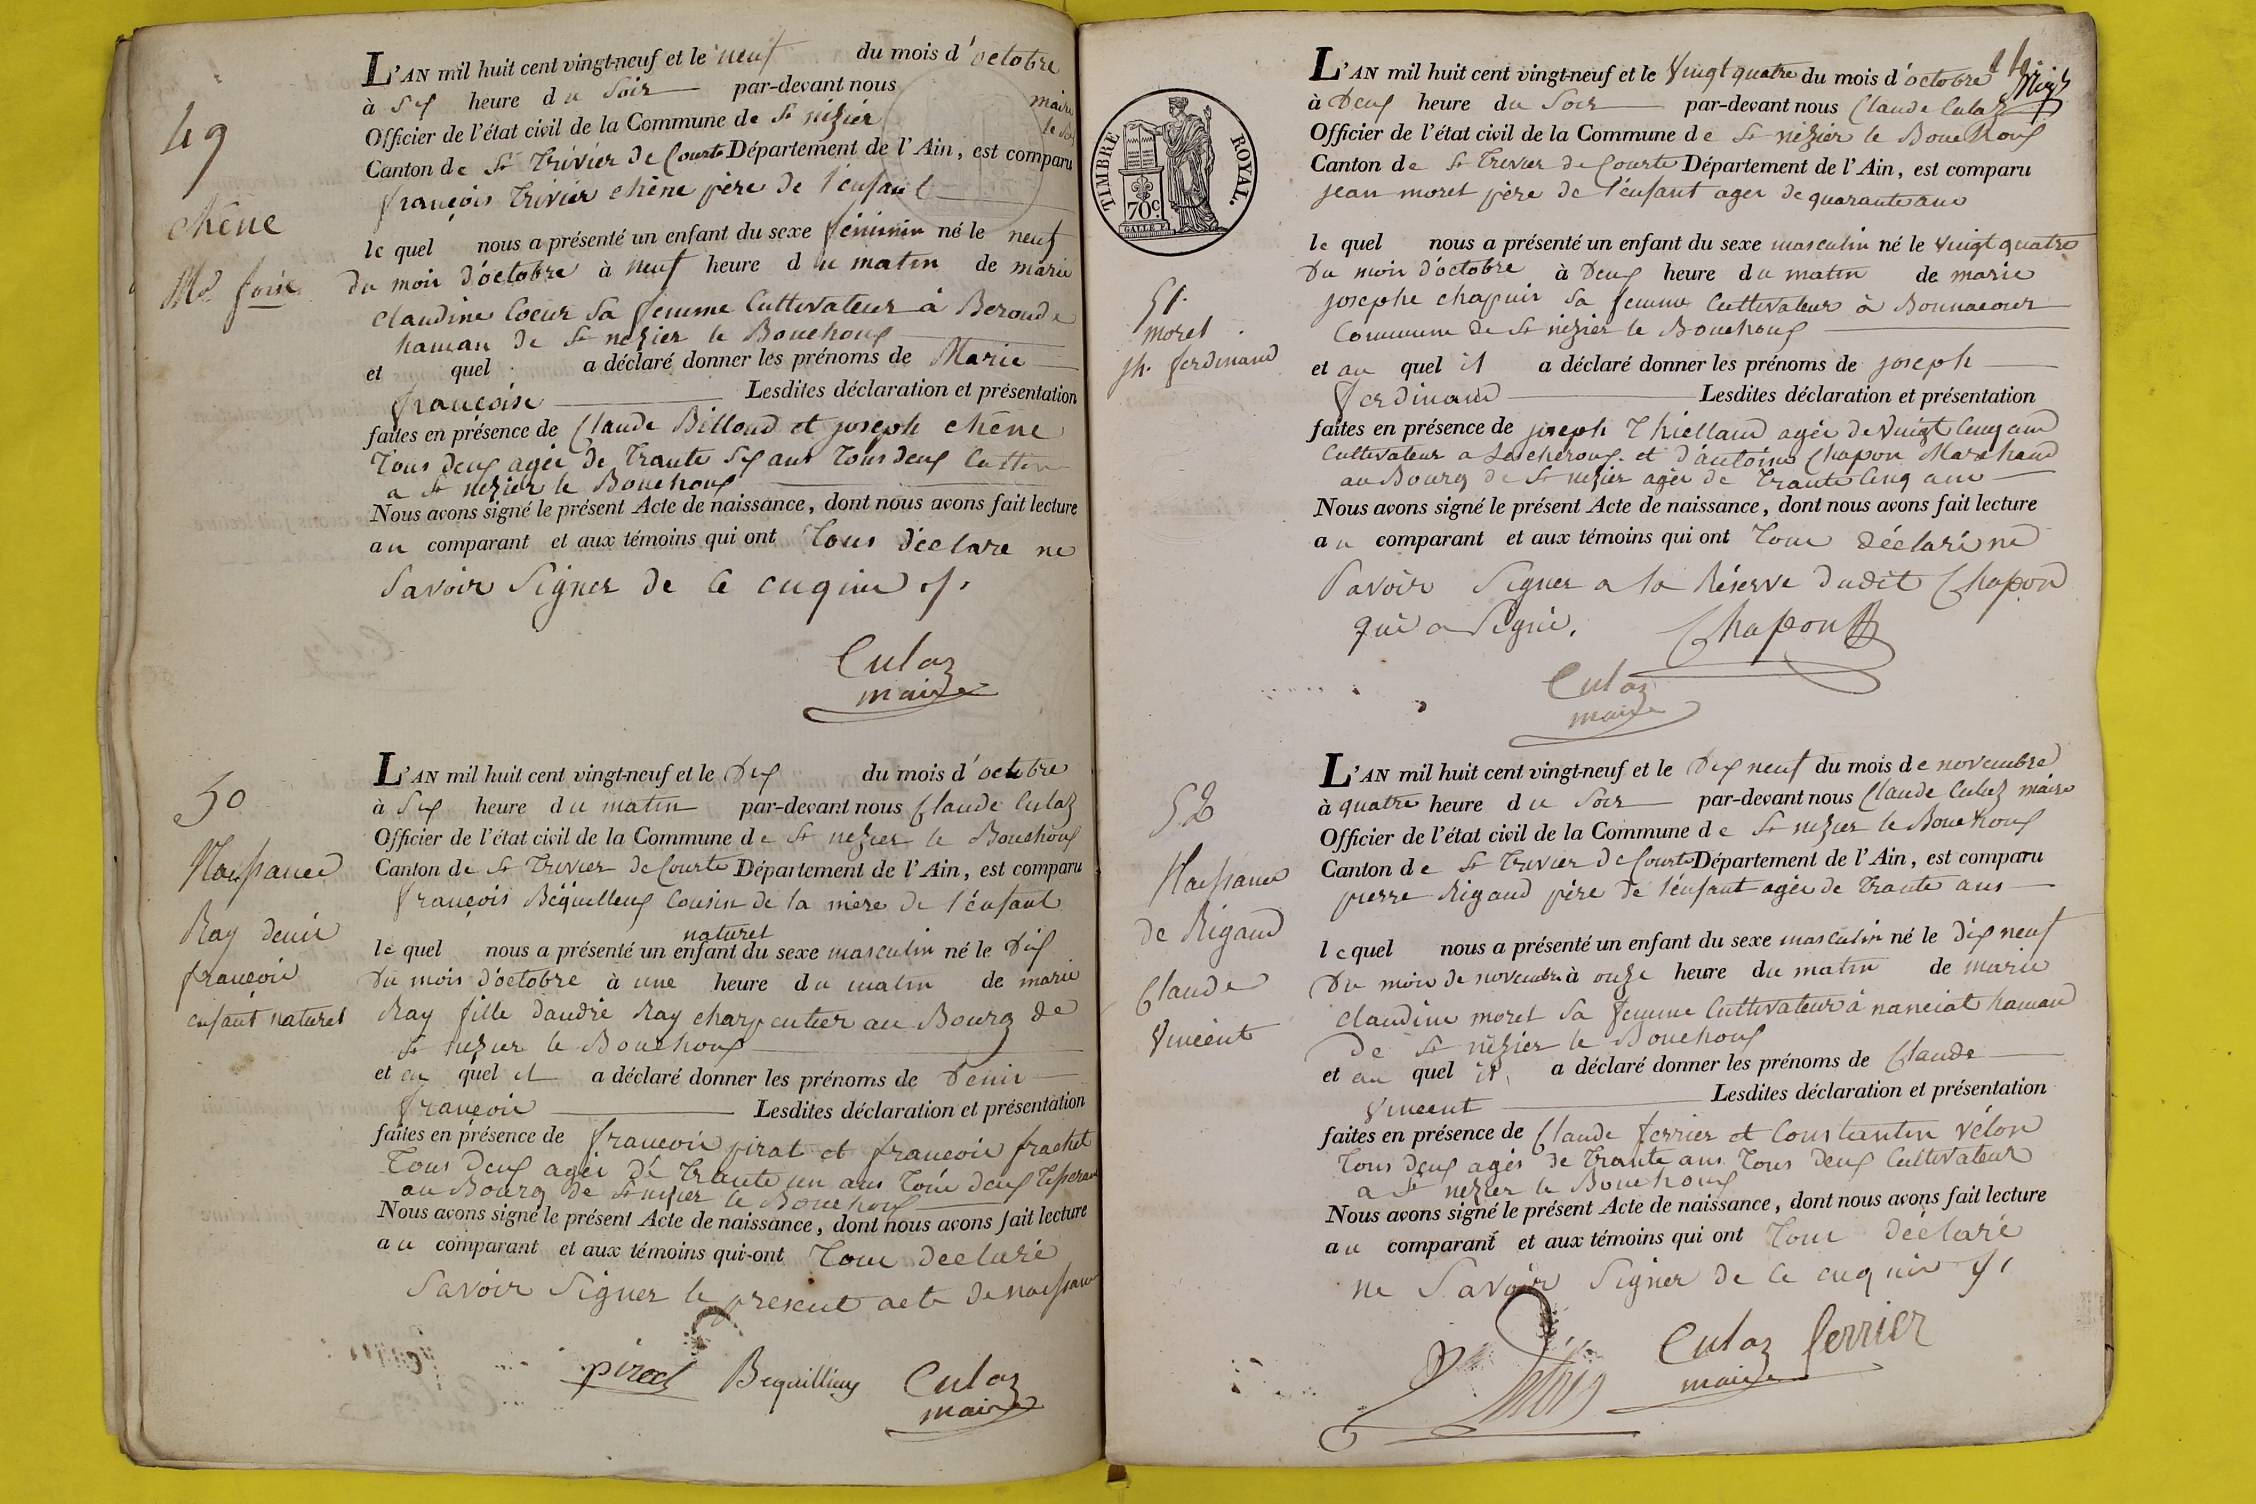 49
chêne
Mie foise
L'AN mil huit cent vingt-neuf et le neuf du mois d'octobre
à Six heure du Soir par-devant nous
maire
Officier de l'état civil de la Commune de St nizier
Canton de St Trivier de Courte Département de l'Ain, est comparu
françois Trivier chêne père de l'enfant
le quel nous a présenté un enfant du sexe féminin né le neuf
du mois d'octobre à neuf heure du matin de marie
claudine Coeur Sa femme Cultivateur à Beroud
hamau de St nizier le Bouchoux
et quel a déclaré donner les prénoms de Marie
françoise Lesdites déclaration et présentation
faites en présence de Claude Billoud et joseph chêne
Tous deux agée de Trante Six ans Tous deux
a St nizier le Bouchoux
Nous avons signé le présent Acte de naissance, dont nous avons fait lecture
au comparant et aux témoins qui ont Tous déclare ne
Savoir Signer de ce enquis
Culaz
maire
50
Naissance
Ray denis
françois
enfant naturel
L'AN mil huit cent vingt-neuf et le Dix du mois d'octobre
à Six heure du matin par-devant nous Claude Culaz
Officier de l'état civil de la Commune de St nizier le Bouchoux
Canton de St Trivier de Courte Département de l'Ain, est comparu
françois Béquilleux Cousin de la mère de l'enfant
naturel
le quel nous a présenté un enfant du sexe masculin né le Dix
Du mois d'octobre à une heure du matin de marie
Ray fille d'andré Ray charpentier au Bourg de
St nizier le Bouchoux
et au quel il a déclaré donner les prénoms de Denis
françois Lesdites déclaration et présentation
faites en présence de françois pirat et françois frachet
Tous Deux agée De Trante un ans Tous deux Tisseran
au Bourg de St nizier le Bouchoux
Nous avons signé le présent Acte de naissance, dont nous avons fait lecture
au comparant et aux témoins qui-ont Tous declaré
Savoir Signer le present acte de naissance
pirat Bequillieux Culaz
maire
TIMBRE ROYAL.
70c
GALLE F.
51
moret
jh. ferdinand
L'AN mil huit cent vingt-neuf et le Vingt quatre du mois d'octobre
à Deux heure du Soir par-devant nous Claude Culaz
Officier de l'état civil de la Commune de St nizier le Bouchoux
Canton de St Trivier de Courte Département de l'Ain, est comparu
jean moret père de l'enfant ager de quarante ans
le quel nous a présenté un enfant du sexe masculin né le Vingt quatre
Du mois d'octobre à Deux heure du matin de marie
josephe chapuis Sa femme Cultivateur à Bonnacour
Commune de St nizier le Bouchoux
et au quel il a déclaré donner les prénoms de joseph
ferdinand Lesdites déclaration et présentation
faites en présence de joseph Thielland agée de Vingt Cinq ans
Cultivateur a Lescheroux et d'antoine Chapon Marchand
au Bourg de St nizier agée de Trante Cinq ans
Nous avons signé le présent Acte de naissance, dont nous avons fait lecture
au comparant et aux témoins qui ont Tous déclaré ne
Savoir Signer a la Réserve dudit Chapon
qui a Signé. Chapon
Culaz
maire
52
Naissance
de Rigaud
Claude
Vincent
L'AN mil huit cent vingt-neuf et le Dix neuf du mois de novembre
à quatre heure du Soir par-devant nous Claude Culaz maire
Officier de l'état civil de la Commune de St nizier le Bouchoux
Canton de St Trivier de Courte Département de l'Ain, est comparu
pierre Rigaud père de l'enfant agée de Trante ans
lequel nous a présenté un enfant du sexe masculin né le dix neuf
Du mois de novembre à onze heure du matin de marie
claudine moret Sa femme Cultivateur à nanciat hamau
De St nizier le Bouchoux
et au quel il a déclaré donner les prénoms de Claude
Vincent Lesdites déclaration et présentation
faites en présence de Claude ferrier et Constantin Vélon
Tous deux agés de Trante ans Tous deux Cultivateur
a St nizier le Bouchoux
Nous avons signé le présent Acte de naissance, dont nous avons fait lecture
au comparant et aux témoins qui ont Tous déclaré
ne Savoir Signer de ce enquis
Culaz ferrier
maire